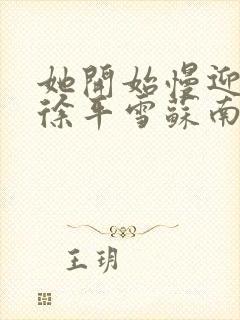 她開始慢迎
徐平雪蘇南
王玥